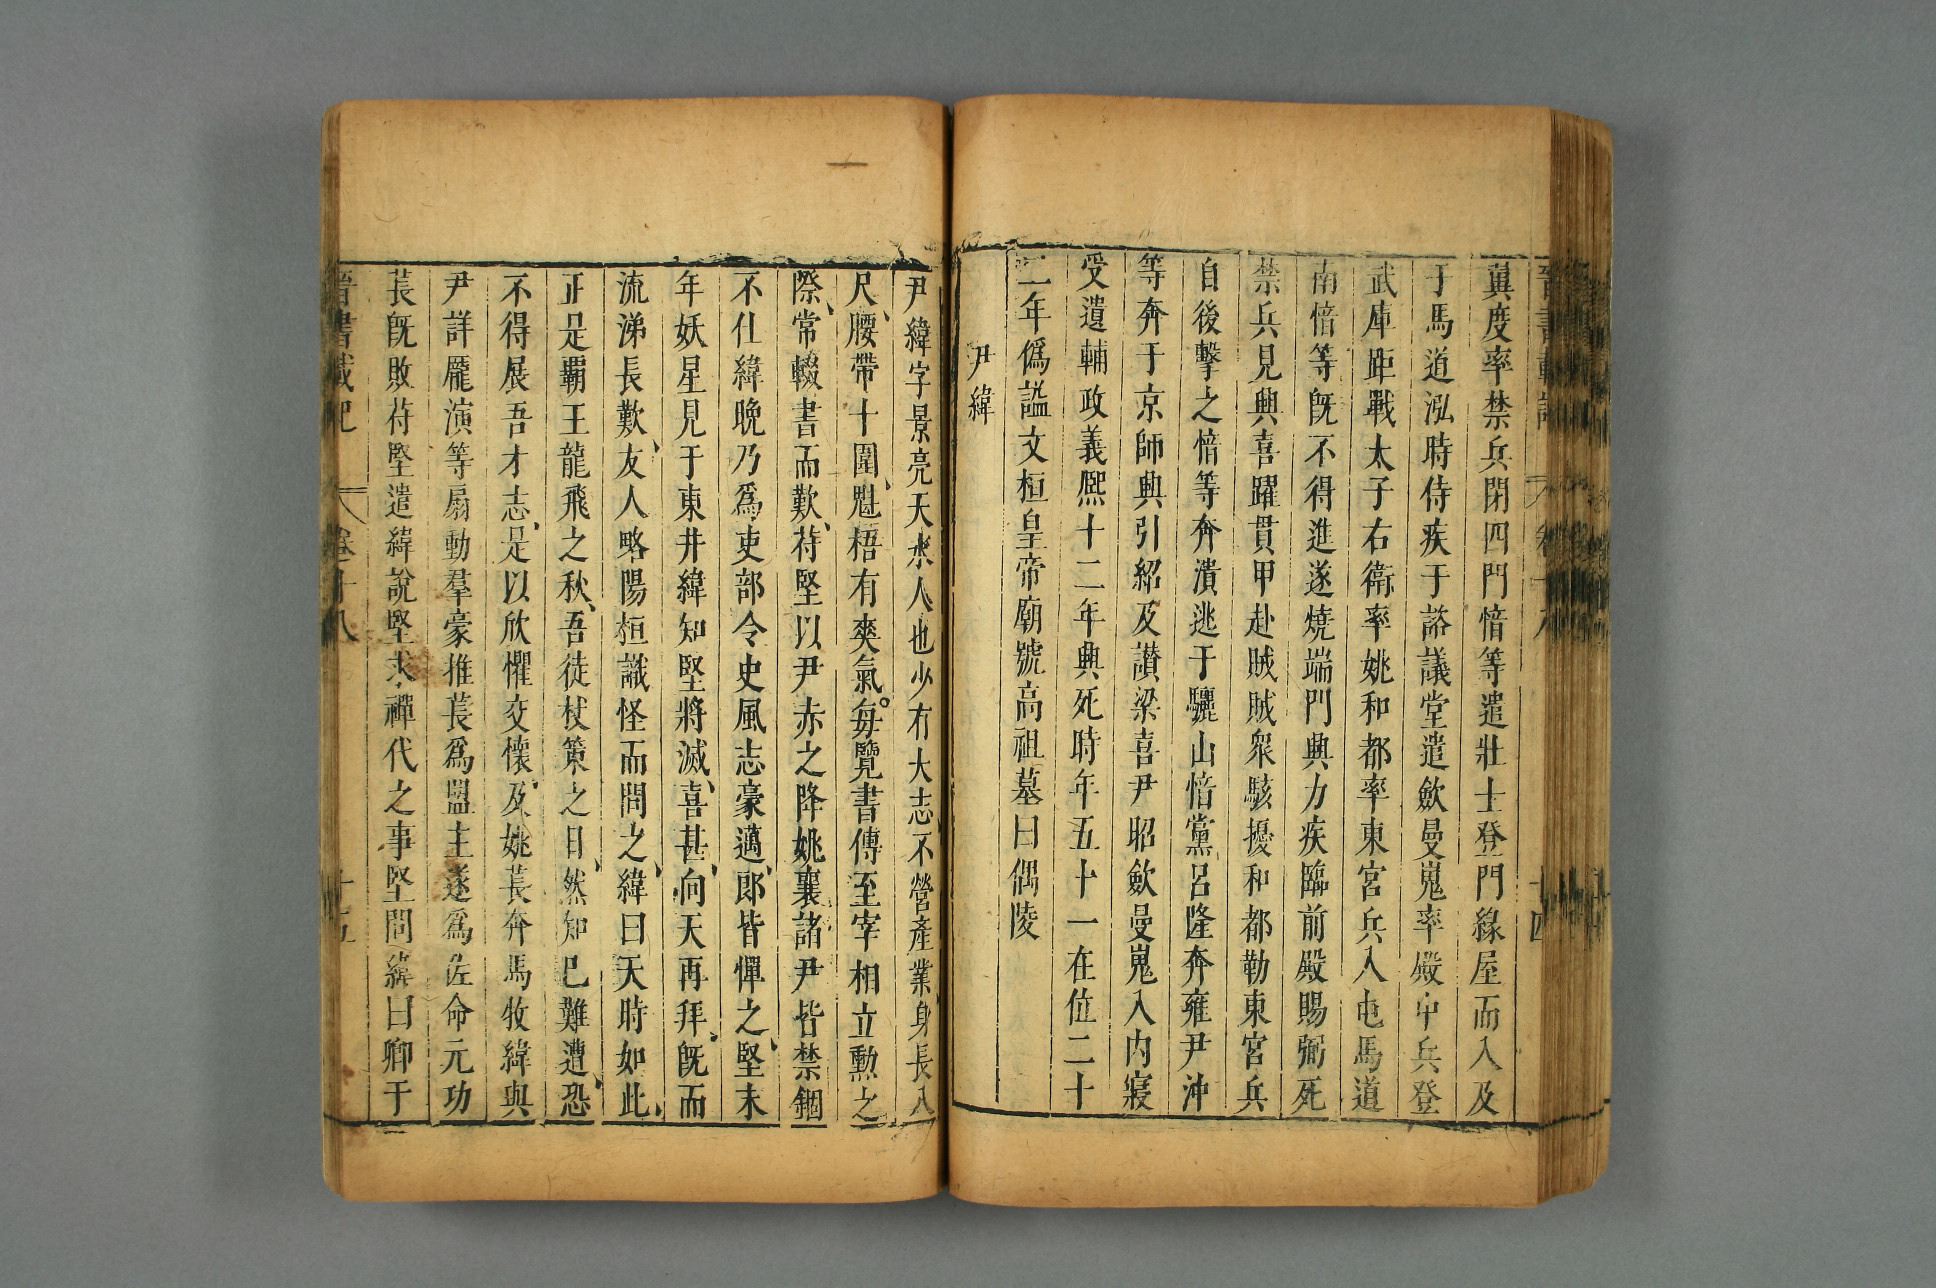 冀度率禁兵閉四門愔等遣壯士登門緣屋而入及
于馬道泓時侍疾于諮議堂遣歛曼嵬率殿中兵登
武庫距戰太子右衛率姚和都率東宮兵入屯馬道
南愔等旣不得進遂燒端門興力疾臨前殿賜弼死
禁兵見興喜躍貫甲赴賊賊衆駭擾和都勒東宮兵
自後擊之愔等奔潰逃于驪山愔黨呂隆奔雍尹沖
等奔于京師興引紹及讃梁喜尹昭歛曼嵬入內寢
受遺輔政義熙十二年興死時年五十一在位二十
二年僞謚文桓皇帝廟號高祖墓曰偶陵
尹緯
尹緯字景亮天水人也少有大志不營產業身長八
尺腰帶十圍魁梧有爽氣每覽書傳至宰相立勲之
際常輟書而歎苻堅以尹赤之降姚襄諸尹皆禁錮
不仕緯晩乃爲吏部令史風志豪邁郎皆憚之堅末
年妖星見于東井緯知堅將滅喜甚向天再拜旣而
流涕長歎友人略陽桓識怪而問之緯曰天時如此
正是覇王龍飛之秋吾徒杖策之日然知已難遭恐
不得展吾才志是以欣懼交懷及姚萇奔馬牧緯與
尹詳龐演等扇動羣豪推萇爲盟主遂爲佐命元功
萇旣敗苻堅遣緯說堅求禪代之事堅問緯曰卿于
晉書載記 卷十八 十五